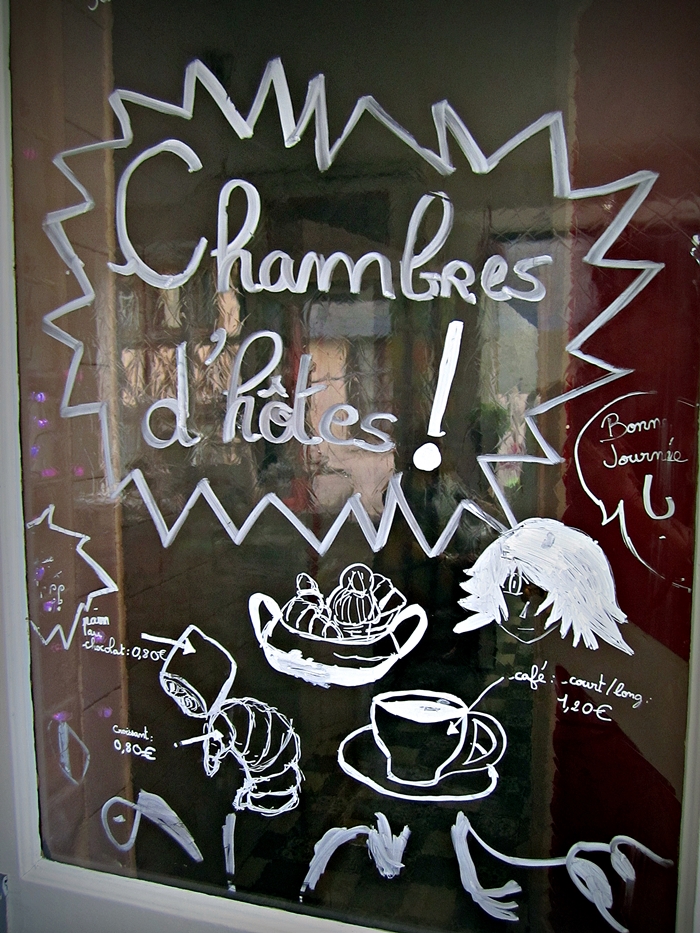 Chambres
d'hôtes !
Bonne
Journée
pain
au
chocolat: 0,80€
café: court/long:
1,20€
Croissant:
0,80€